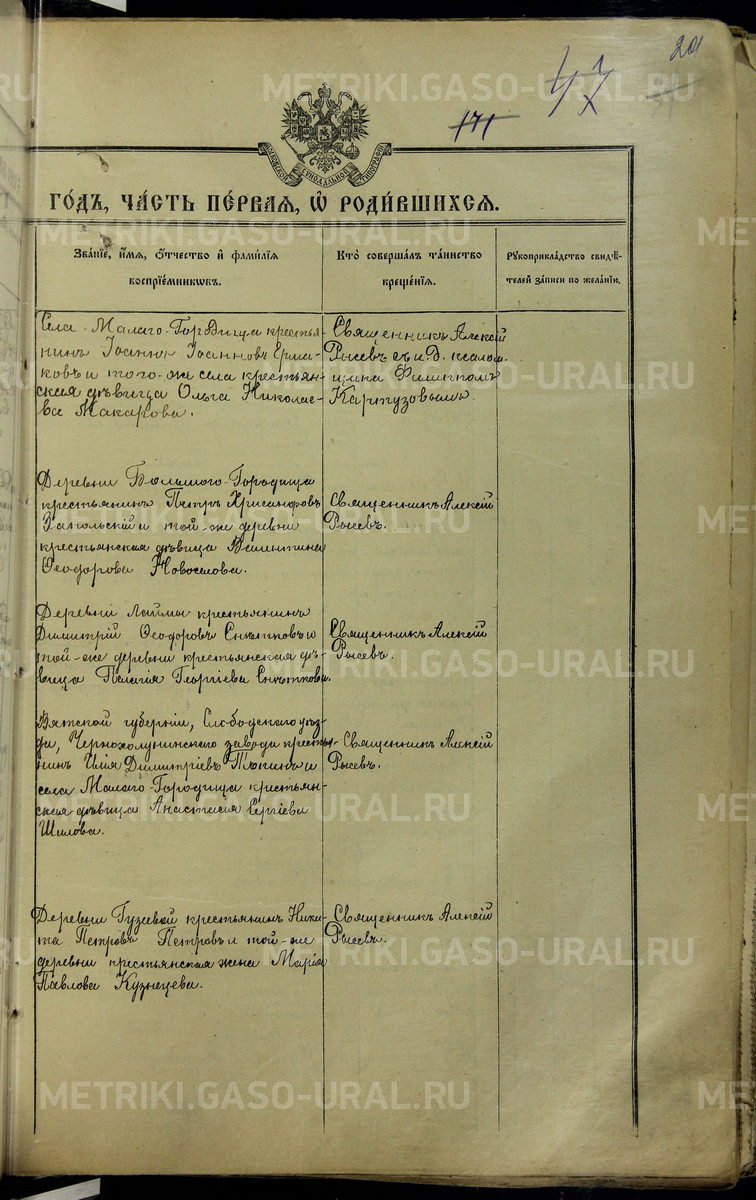 201
47
171
МОСКОВСКОЙ СѴНОДАЛЬНОЙ ТИПОГРАФІИ
ГО́ДЪ, ЧА́СТЬ ПЕ́РВАЯ, Ѡ҆ РОДИ́ВШИХСЯ.
Зва́нїе, и҆́мя, ѻ҆́тчество и҆ фами́лїя
воспрїе́мникѡвъ.
Кто̀ соверша́лъ та́инство
креще́нїя.
Рꙋкоприкла́дство свидѣ́-
телей за́писи по жела́нїю.
Села Малаго-Городища крестья-
нинъ Іоаннъ Іоанновъ Ерма-
ковъ и того-же села крестьян-
ская дѣвица Ольга Николае-
ва Макарова.
Священникъ Алексій
Рысевъ съ и. д. псалом-
щика Филиппомъ
Картузовымъ
Деревни Большого-Городища
крестьянинъ Петръ Хрисанфовъ
Запольскій и той-же деревни
крестьянская дѣвица Валентина
Ѳеодорова Новоселова.
Священникъ Алексій
Рысевъ.
Деревни Лаймы крестьянинъ
Димитрій Ѳеодоровъ Снѣтковъ и
той-же деревни крестьянская дѣ-
вица Пелагія Георгіева Снѣткова.
Священникъ Алексій
Рысевъ.
Вятской губерніи, Слободского уѣз-
да, Чернохолуницкаго завода крестья-
нинъ Илія Димитріевъ и
села Малаго-Городища крестьян-
ская дѣвица Анастасія Сергіева
Шилова.
Священникъ Алексій
Рысевъ.
Деревни крестьянинъ Ники-
та Петровъ Петровъ и той-же
деревни крестьянская жена Марія
Павлова Кузнецева.
Священникъ Алексій
Рысевъ.
METRIKI.GASO-URAL.RU
METRIKI.GASO-URAL.RU
METRIKI.GASO-URAL.RU
METRIKI.GASO-URAL.RU
METRIKI.GASO-URAL.RU
METRIKI.GASO-URAL.RU
METRIKI.GASO-URAL.RU